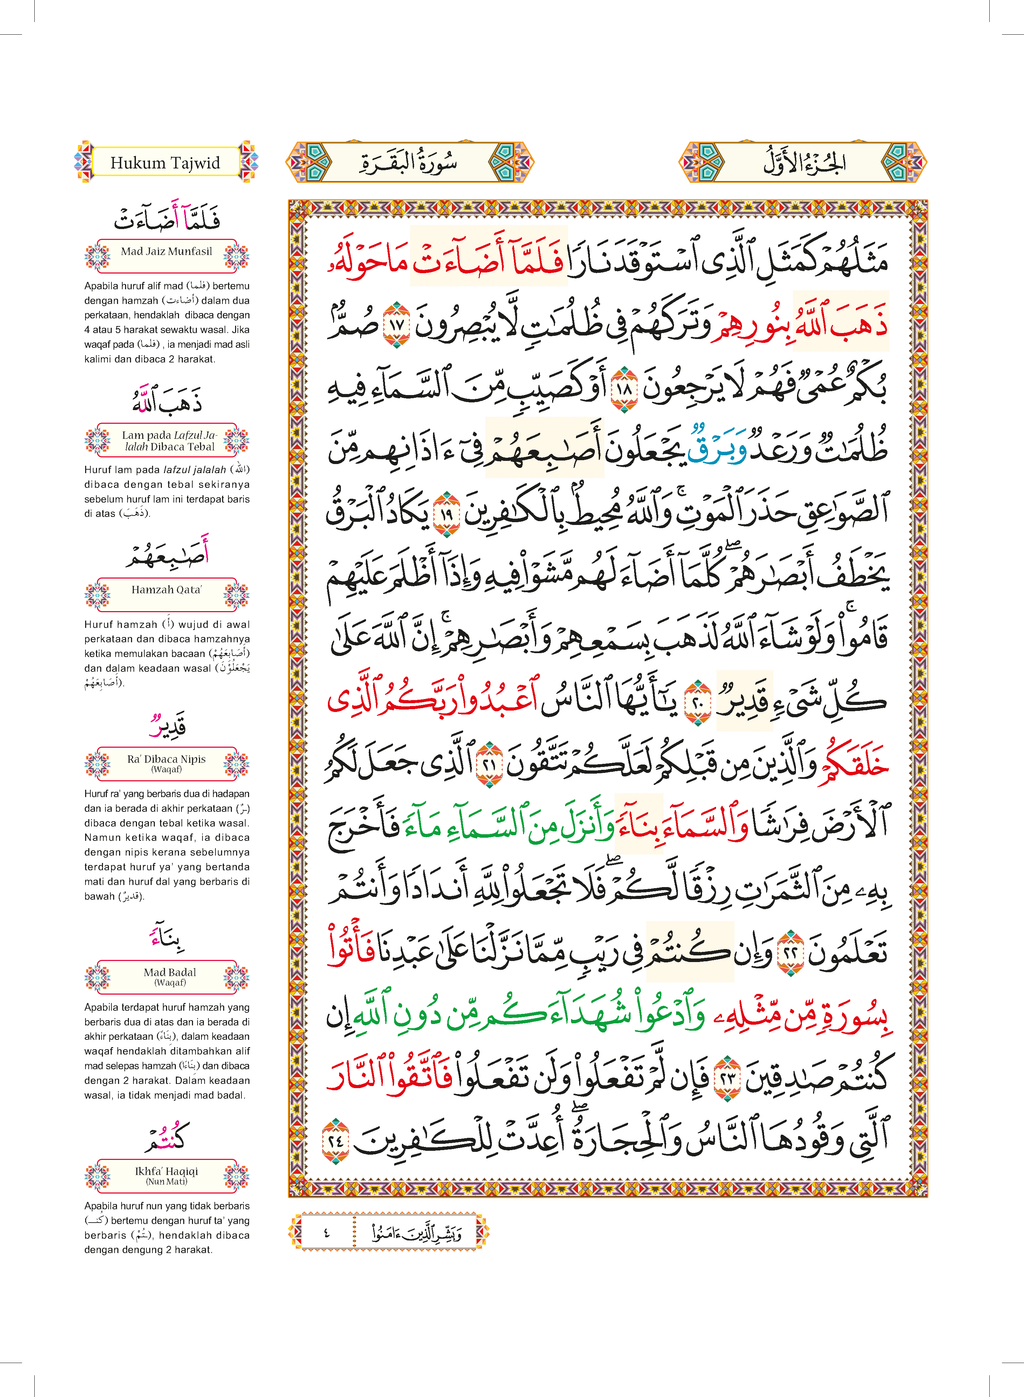 Hukum Tajwid
سُورَةُ الْبَقَرَةِ
الْجُزْءُ الْأَوَّلُ
مَثَلُهُمْ كَمَثَلِ ٱلَّذِى ٱسْتَوْقَدَ نَارًا فَلَمَّآ أَضَآءَتْ مَا حَوْلَهُۥ
ذَهَبَ ٱللَّهُ بِنُورِهِمْ وَتَرَكَهُمْ فِى ظُلُمَٰتٍ لَّا يُبْصِرُونَ ١٧ صُمٌّۢ
بُكْمٌ عُمْىٌ فَهُمْ لَا يَرْجِعُونَ ١٨ أَوْ كَصَيِّبٍ مِّنَ ٱلسَّمَآءِ فِيهِ
ظُلُمَٰتٌ وَرَعْدٌ وَبَرْقٌ يَجْعَلُونَ أَصَٰبِعَهُمْ فِىٓ ءَاذَانِهِم مِّنَ
ٱلصَّوَٰعِقِ حَذَرَ ٱلْمَوْتِ ۚ وَٱللَّهُ مُحِيطٌۢ بِٱلْكَٰفِرِينَ ١٩ يَكَادُ ٱلْبَرْقُ
يَخْطَفُ أَبْصَٰرَهُمْ ۖ كُلَّمَآ أَضَآءَ لَهُم مَّشَوْا۟ فِيهِ وَإِذَآ أَظْلَمَ عَلَيْهِمْ
قَامُوا۟ ۚ وَلَوْ شَآءَ ٱللَّهُ لَذَهَبَ بِسَمْعِهِمْ وَأَبْصَٰرِهِمْ ۚ إِنَّ ٱللَّهَ عَلَىٰ
كُلِّ شَىْءٍ قَدِيرٌ ٢٠ يَٰٓأَيُّهَا ٱلنَّاسُ ٱعْبُدُوا۟ رَبَّكُمُ ٱلَّذِى
خَلَقَكُمْ وَٱلَّذِينَ مِن قَبْلِكُمْ لَعَلَّكُمْ تَتَّقُونَ ٢١ ٱلَّذِى جَعَلَ لَكُمُ
ٱلْأَرْضَ فِرَٰشًا وَٱلسَّمَآءَ بِنَآءً وَأَنزَلَ مِنَ ٱلسَّمَآءِ مَآءً فَأَخْرَجَ
بِهِۦ مِنَ ٱلثَّمَرَٰتِ رِزْقًا لَّكُمْ ۖ فَلَا تَجْعَلُوا۟ لِلَّهِ أَندَادًا وَأَنتُمْ
تَعْلَمُونَ ٢٢ وَإِن كُنتُمْ فِى رَيْبٍ مِّمَّا نَزَّلْنَا عَلَىٰ عَبْدِنَا فَأْتُوا۟
بِسُورَةٍ مِّن مِّثْلِهِۦ وَٱدْعُوا۟ شُهَدَآءَكُم مِّن دُونِ ٱللَّهِ إِن
كُنتُمْ صَٰدِقِينَ ٢٣ فَإِن لَّمْ تَفْعَلُوا۟ وَلَن تَفْعَلُوا۟ فَٱتَّقُوا۟ ٱلنَّارَ
ٱلَّتِى وَقُودُهَا ٱلنَّاسُ وَٱلْحِجَارَةُ ۖ أُعِدَّتْ لِلْكَٰفِرِينَ ٢٤
وَبَشِّرِ ٱلَّذِينَ ءَامَنُوا۟
٤
فَلَمَّآ أَضَآءَتْ
Mad Jaiz Munfasil
Apabila huruf alif mad (فلما) bertemu
dengan hamzah (أضاءت) dalam dua
perkataan, hendaklah dibaca dengan
4 atau 5 harakat sewaktu wasal. Jika
waqaf pada (فلما) , ia menjadi mad asli
kalimi dan dibaca 2 harakat.
ذَهَبَ ٱللَّهُ
Lam pada Lafzul Ja-
lalah Dibaca Tebal
Huruf lam pada lafzul jalalah (الله)
dibaca dengan tebal sekiranya
sebelum huruf lam ini terdapat baris
di atas (ذَهَبَ).
أَصَٰبِعَهُمْ
Hamzah Qata'
Huruf hamzah (أ) wujud di awal
perkataan dan dibaca hamzahnya
ketika memulakan bacaan (أَصَابِعَهُمْ)
dan dalam keadaan wasal (يَجْعَلُوْنَ
أَصَابِعَهُمْ).
قَدِيرٌ
Ra' Dibaca Nipis
(Waqaf)
Huruf ra' yang berbaris dua di hadapan
dan ia berada di akhir perkataan (ـرٌ)
dibaca dengan tebal ketika wasal.
Namun ketika waqaf, ia dibaca
dengan nipis kerana sebelumnya
terdapat huruf ya' yang bertanda
mati dan huruf dal yang berbaris di
bawah (قَدِيْرٌ).
بِنَآءً
Mad Badal
(Waqaf)
Apabila terdapat huruf hamzah yang
berbaris dua di atas dan ia berada di
akhir perkataan (بِنَاءً), dalam keadaan
waqaf hendaklah ditambahkan alif
mad selepas hamzah (بِنَاءَا) dan dibaca
dengan 2 harakat. Dalam keadaan
wasal, ia tidak menjadi mad badal.
كُنتُمْ
Ikhfa' Haqiqi
(Nun Mati)
Apabila huruf nun yang tidak berbaris
(كُنـ) bertemu dengan huruf ta' yang
berbaris (ـتُمْ), hendaklah dibaca
dengan dengung 2 harakat.